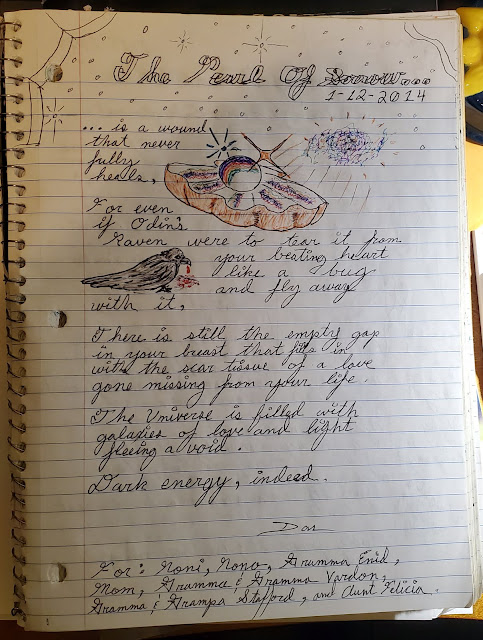 The Pearl Of Sorrow...
1-12-2014
... is a wound
that never
fully
heals,
For even
if Odin's
Raven were to tear it from
your beating heart
like a bug
and fly away
with it,
There is still the empty gap
in your breast that fills in
with the scar tissue of a love
gone missing from your life.
The Universe is filled with
galaxies of love and light
fleeing a void.
Dark energy, indeed.
For: Noni, Nono, Gramma Enid,
Mom, Gramma & Gramma Vardon,
Gramma & Grampa Stafford, and Aunt Felicia.